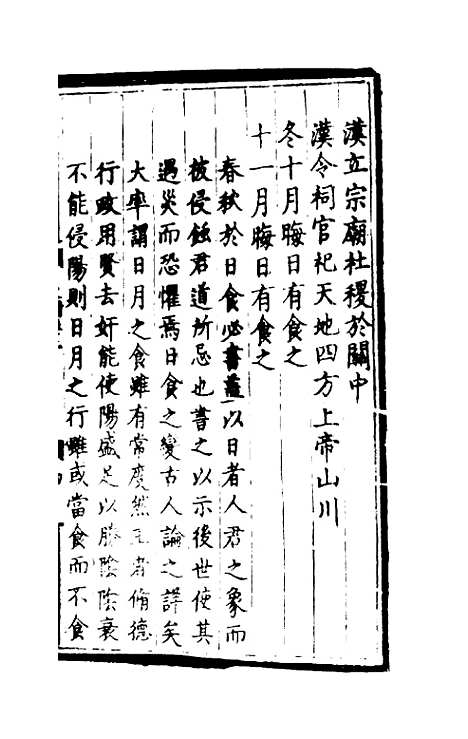 漢立宗廟社稷於關中
漢令祠官祀天地四方上帝山川
冬十月晦日有食之
十一月晦日有食之
春秋於日食必書蓋以日者人君之象而
被侵蝕君道所忌也書之以示後世使其
遇災而恐懼焉日食之變古人論之詳矣
大率謂日月之食雖有常度然王者脩德
行政用賢去奸能使陽盛足以勝陰陰衰
不能侵陽則日月之行雖或當食而不食